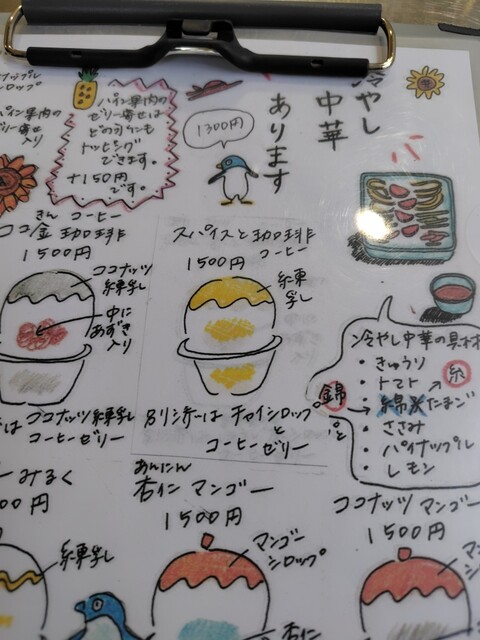 冷やし
中華
あります
1300円
パイン果肉の
ゼリー寄せは
どの司令にも
トッピング
できます。
+150円
です。
シロップ
パイン果肉の
ゼリー寄せ
入り
きん コーヒー
ココ金 珈琲
1500円
ココナッツ
練乳
中に
あずき
入り
は ココナッツ練乳
コーヒーゼリー
スパイスと珈琲
コーヒー
1500円
練乳
別添は チャイシロップ
と
コーヒーゼリー
冷やし中華の具材
・きゅうり
・トマト
糸
錦
・綿糸たまご
・ささみ
・パイナップル
・レモン
みるく
00円
練乳
あんにん
杏仁 マンゴー
1500円
マンゴー
シロップ
杏仁
ココナッツ マンゴー
1500円